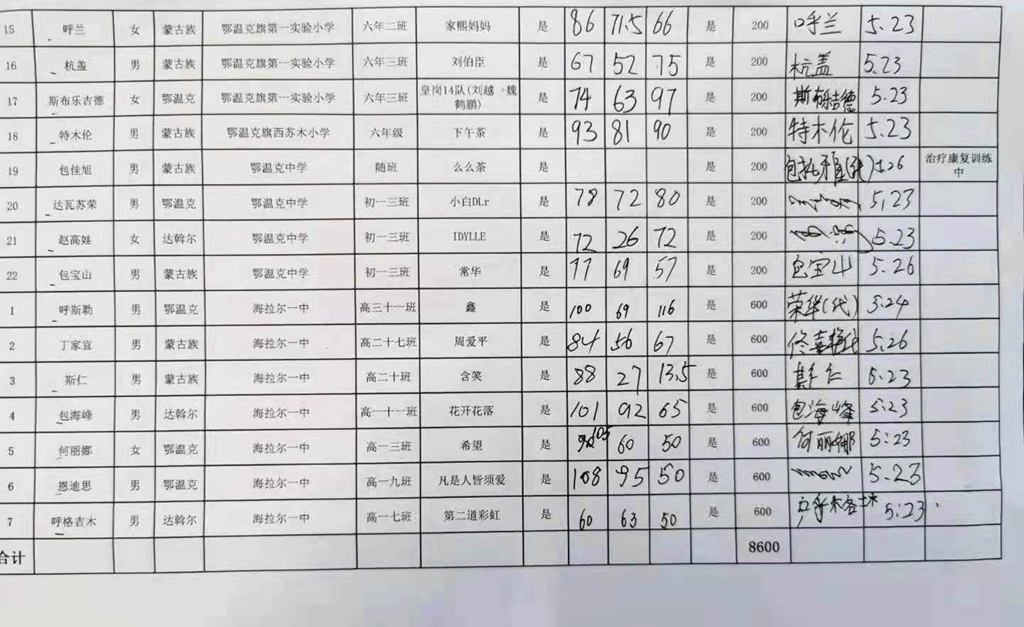 15 呼兰 女 蒙古族 鄂温克旗第一实验小学 六年二班 家熙妈妈 是 86 71.5 66 是 200 呼兰 5.23
16 杭盖 男 蒙古族 鄂温克旗第一实验小学 六年三班 刘伯臣 是 67 52 75 是 200 杭盖 5.23
17 斯布乐吉德 女 鄂温克 鄂温克旗第一实验小学 六年三班 皇岗14队(刘越+魏鹤鹏) 是 74 63 97 是 200 5.23
18 特木伦 男 蒙古族 鄂温克旗西苏木小学 六年级 下午茶 是 93 81 90 是 200 特木伦 5.23
19 包佳旭 男 蒙古族 鄂温克中学 随班 么么茶 是 是 200 5.26 治疗康复训练中
20 达瓦苏荣 男 鄂温克 鄂温克中学 初一三班 小白DLr 是 78 72 80 是 200 5.23
21 赵高娃 女 达斡尔 鄂温克中学 初一三班 IDYLLE 是 72 26 72 是 200 5.23
22 包宝山 男 蒙古族 鄂温克中学 初一三班 常华 是 77 69 57 是 200 包宝山 5.26
1 呼斯勒 男 鄂温克 海拉尔一中 高三十一班 鑫 是 100 69 116 是 600 荣华(代) 5.24
2 丁家宜 男 蒙古族 海拉尔一中 高二十七班 周爱平 是 84 56 67 是 600 5.26
3 斯仁 男 蒙古族 海拉尔一中 高二十班 含笑 是 88 27 13.5 是 600 斯仁 5.23
4 包海峰 男 达斡尔 海拉尔一中 高一十一班 花开花落 是 101 92 65 是 600 包海峰 5:23
5 何丽娜 女 鄂温克 海拉尔一中 高一三班 希望 是 60 50 是 600 何丽娜 5:23
6 恩迪思 男 鄂温克 海拉尔一中 高一九班 凡是人皆须爱 是 108 95 50 是 600 5.23
7 呼格吉木 男 达斡尔 海拉尔一中 高一七班 第二道彩虹 是 60 63 50 是 600 5:23
合计 8600